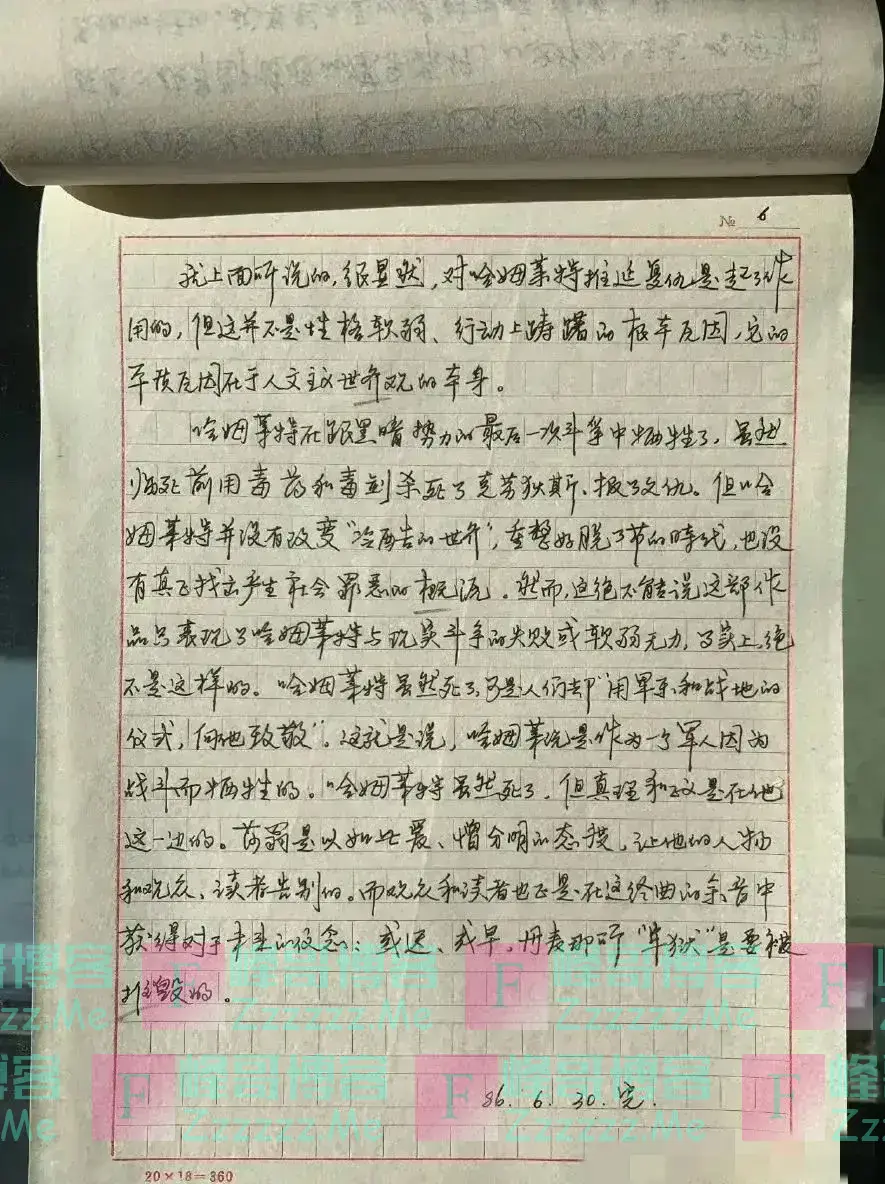 № 6
就上面所说的,很显然,对哈姆莱特推延复仇是起了作
用的,但这并不是性格软弱、行动上踌躇的根本原因,它的
本质原因在于人文主义世界观的本身。
哈姆莱特在跟黑暗势力的最后一次斗争中牺牲了,虽然
临死前用毒药和毒剑杀死了克劳狄斯、报了父仇。但哈
姆莱特并没有改变“冷酷的世界”,重整好脱了节的时代,也没
有真正找出产生社会罪恶的根源。然而,这绝不能说这部作
品只表现了哈姆莱特与现实斗争的失败或软弱无力,事实上,绝
不是这样的。哈姆莱特虽然死了,可是人们却“用军乐和战地的
仪式,向他致敬”。这就是说,哈姆莱特是作为一个军人因为
战斗而牺牲的。哈姆莱特虽然死了,但真理和正义是在他
这一边的。莎翁是以如此爱、憎分明的态度,让他的人物
和观众、读者告别的。而观众和读者也正是在这终曲的余音中
获得对于未来的信念:或迟、或早,丹麦那所“牢狱”是要被
摧毁的。
86. 6. 30. 完.
20×18=360
峰哥博客
Zzzzzz.Me
F
峰哥博客
Zzzzzz.Me
F
峰哥博客
Zzzzzz.Me
F